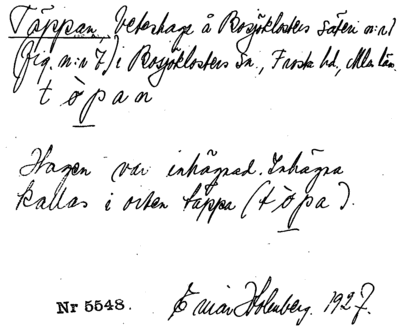 Täppan, beteshage å Bosjöklosters säteri n:r 1
(fig. n:r 7) i Bosjöklosters sn., Frosta hd., Mlm. län.
tòpan
Hagen var inhägnad. Inhägna
kallas i orten täppa (tòpa).
Nr 5548. Einar Holmberg. 1927.